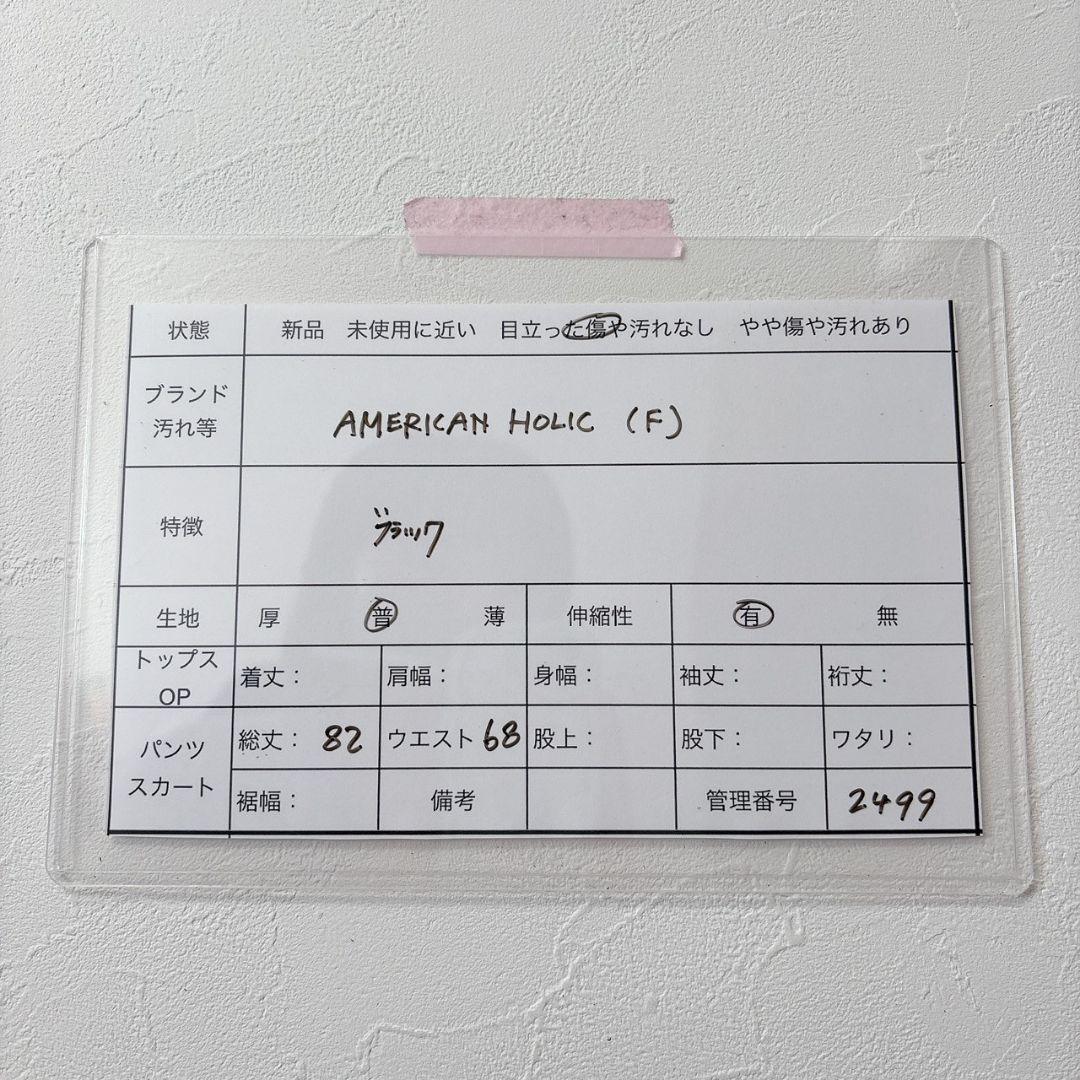 状態 新品 未使用に近い 目立った傷や汚れなし やや傷や汚れあり
ブランド
汚れ等
AMERICAN HOLIC (F)
特徴 ブラック
生地 厚 普 薄 伸縮性 有 無
トップス
OP
着丈： 肩幅： 身幅： 袖丈： 裄丈：
パンツ
スカート
総丈： 82 ウエスト 68 股上： 股下： ワタリ：
裾幅： 備考 管理番号 2499